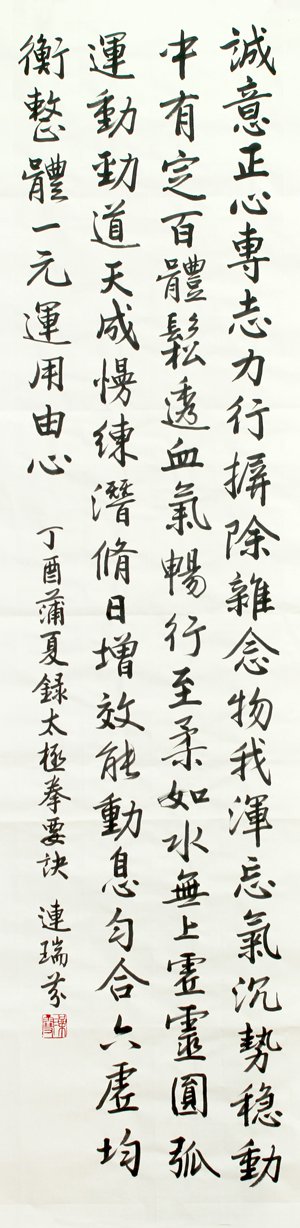 誠意正心專志力行摒除雜念物我渾忘氣沉勢穩動
中有定百體鬆透血氣暢行至柔如水無上虛靈圓弧
運動勁道天成慢練潛脩日增效能動息勻合六虛均
衡整體一元運用由心
丁酉蒲夏録太極拳要訣 連瑞芬